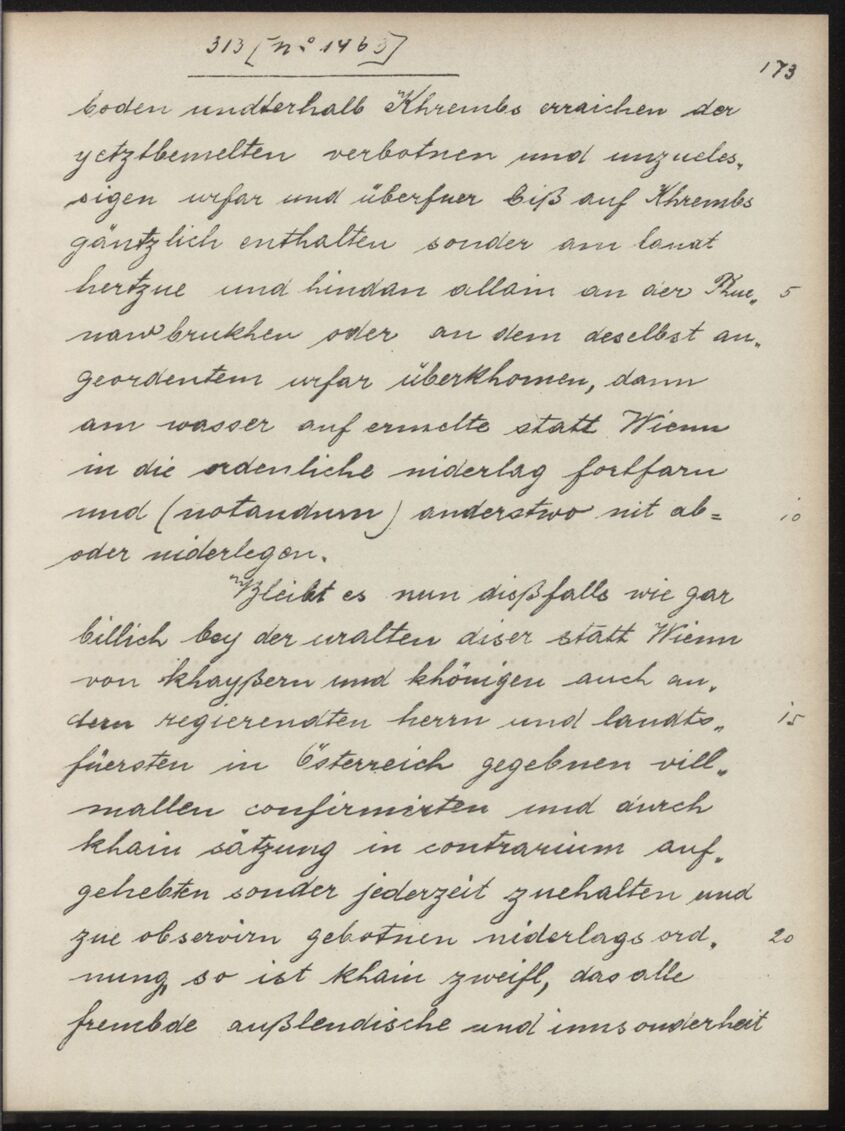 313 [n.º 1463]
173
boden undterhalb Khrembs erraichen der
yetztbemelten verbotnen und unzueles„
sigen urfar und überfuer biß auf Khrembs
gäntzlich enthalten sonder am landt
hertzue und hindan allain an der Thue„ 5
naw brukhen oder an dem deselbst an„
geordentem urfar überkhomen, dann
am wasser auf ermelte statt Wienn
in die ordenliche niderlag fortfarn
und (notandum) anderstwo nit ab= 10
oder niderlegen.
Bleibt es nun dißfalls wie gar
billich bey der uralten diser statt Wienn
von khayßern und khönigen auch an„
dern regierendten herrn und landts„ 15
füersten in Österreich gegebnen vill„
mallen confirmirten und durch
khain sätzung in contrarium auf„
gehebten sonder jederzeit zuehalten und
zue observirn gebotnen niderlags ord„ 20
nung, so ist khain zweifl, das alle
frembde außlendische und innsonderheit